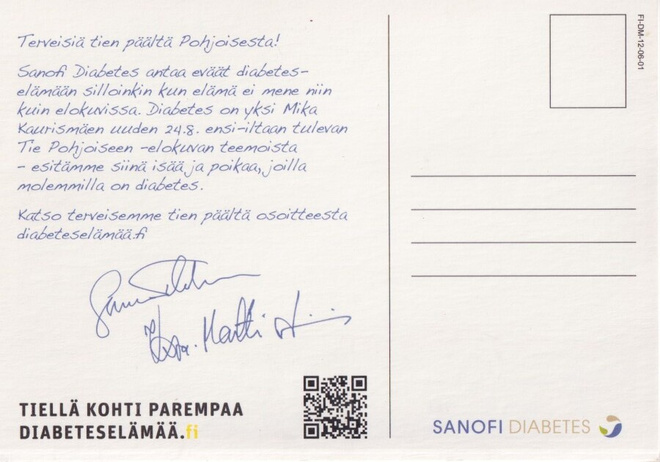 Terveisiä tien päältä Pohjoisesta!
Sanofi Diabetes antaa eväät diabetes-
elämään silloinkin kun elämä ei mene niin
kuin elokuvissa. Diabetes on yksi Mika
Kaurismäen uuden 24.8. ensi-iltaan tulevan
Tie Pohjoiseen -elokuvan teemoista
- esitämme siinä isää ja poikaa, joilla
molemmilla on diabetes.
Katso terveisemme tien päältä osoitteesta
diabeteselämää.fi
TIELLÄ KOHTI PAREMPAA
DIABETESELÄMÄÄ.fi
FI-DM-12-06-01
SANOFI DIABETES